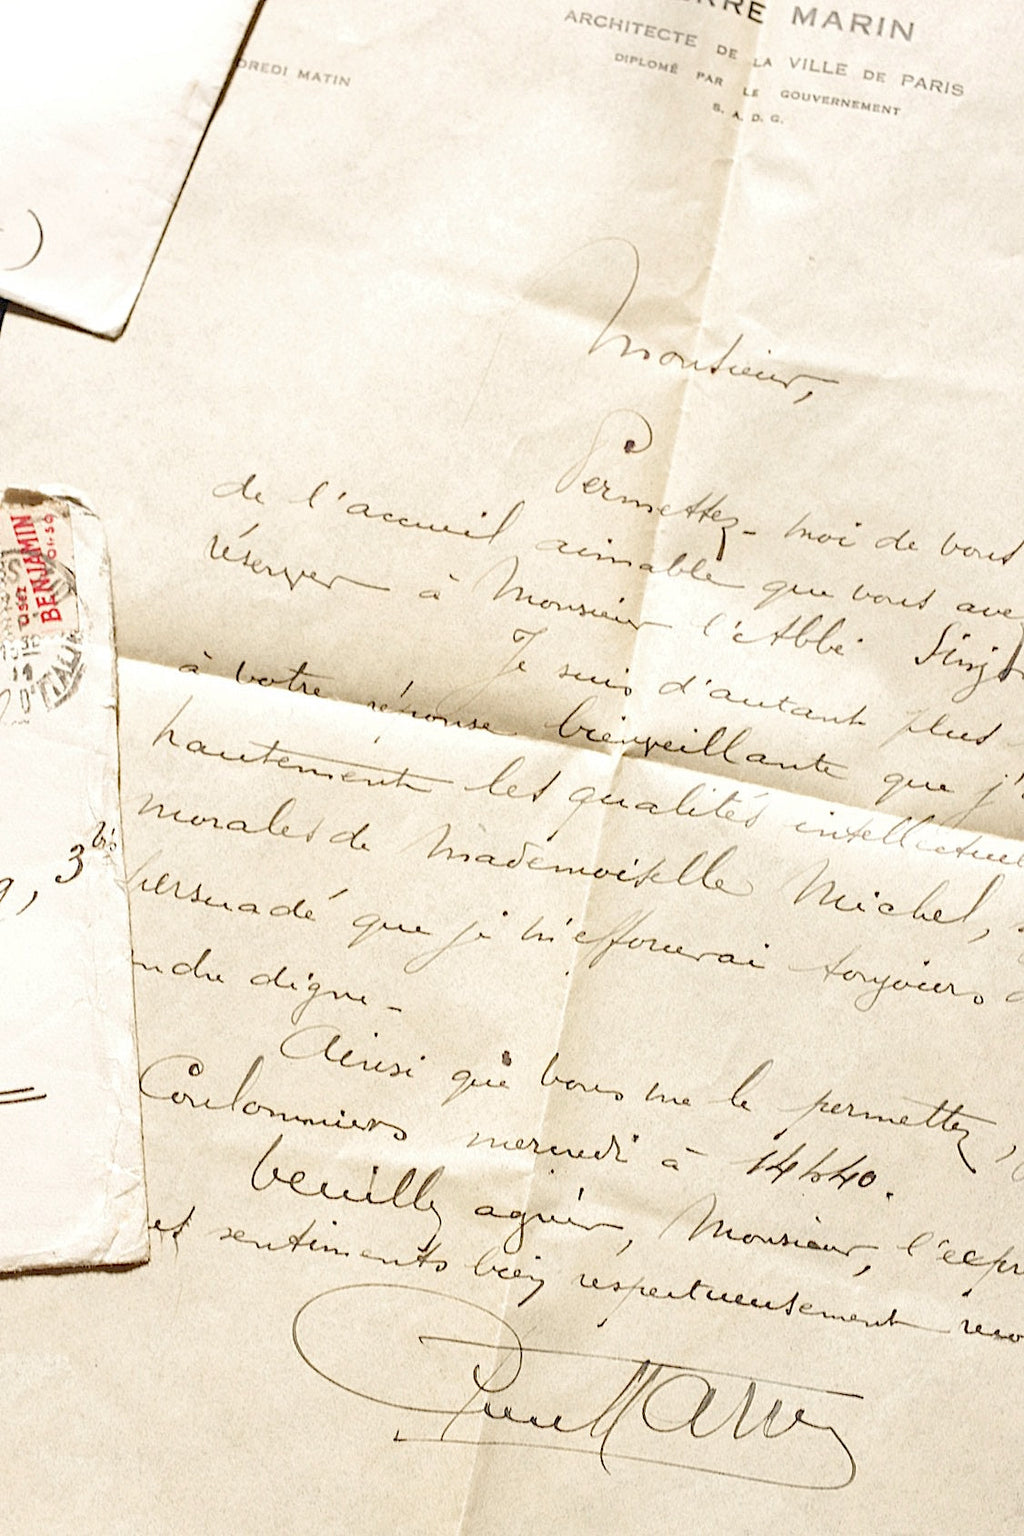 ERRE MARIN
ARCHITECTE DE LA VILLE DE PARIS
DIPLOMÉ PAR LE GOUVERNEMENT
S. A. D. G.
DREDI MATIN
Monsieur,
Permettez-moi de vous
de l'accueil aimable que vous avez
réserver à Monsieur l'Abbé
Je suis d'autant plus
à votre réponse bienveillante que j'
hautement les qualités intellectuel
morales de Mademoiselle Michel,
persuadé que je m'efforcerai toujours
ndre digne.
Ainsi que vous me le permettez,
Coulommiers mercredi à 14h40.
Veuillez agréer, Monsieur, l'expr
et sentiments bien respectueusement
Pierre Marin
usez
BENJAMIN
3 bis